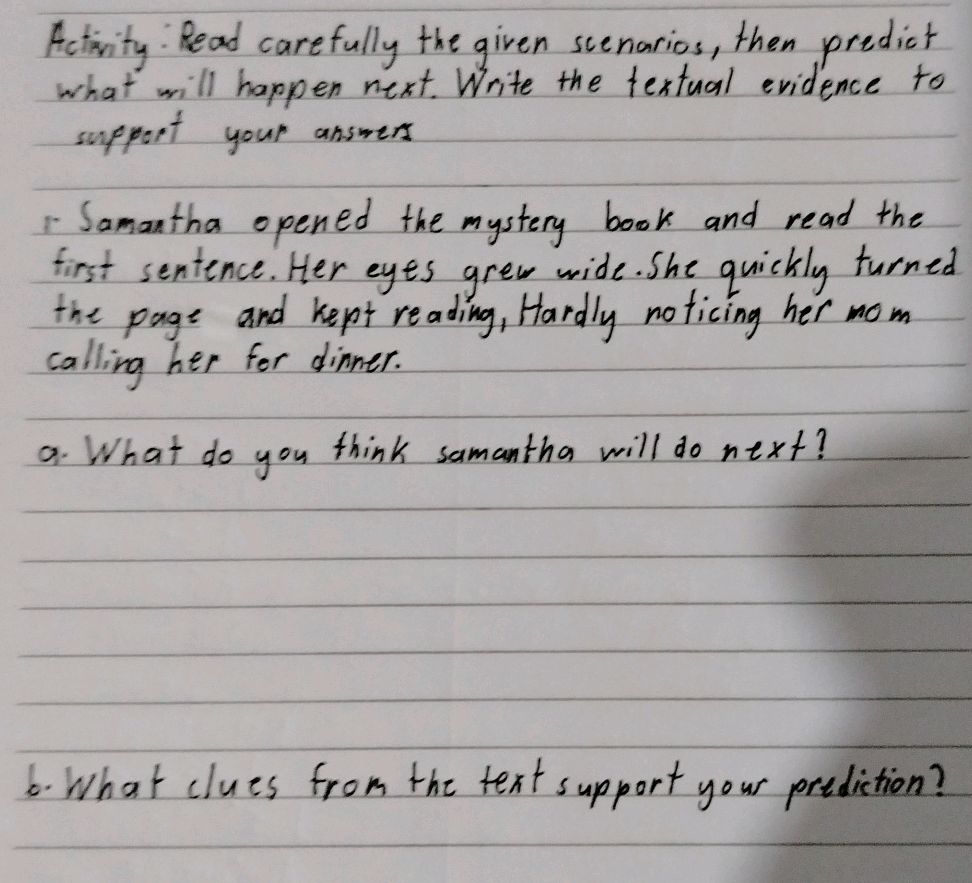 Activity: Read carefully the given scenarios, then predict
what will happen next. Write the textual evidence to
support your answers
1- Samantha opened the mystery book and read the
first sentence. Her eyes grew wide. She quickly turned
the page and kept reading, Hardly noticing her mom
calling her for dinner.
a. What do you think samantha will do next?
b. What clues from the text support your prediction?